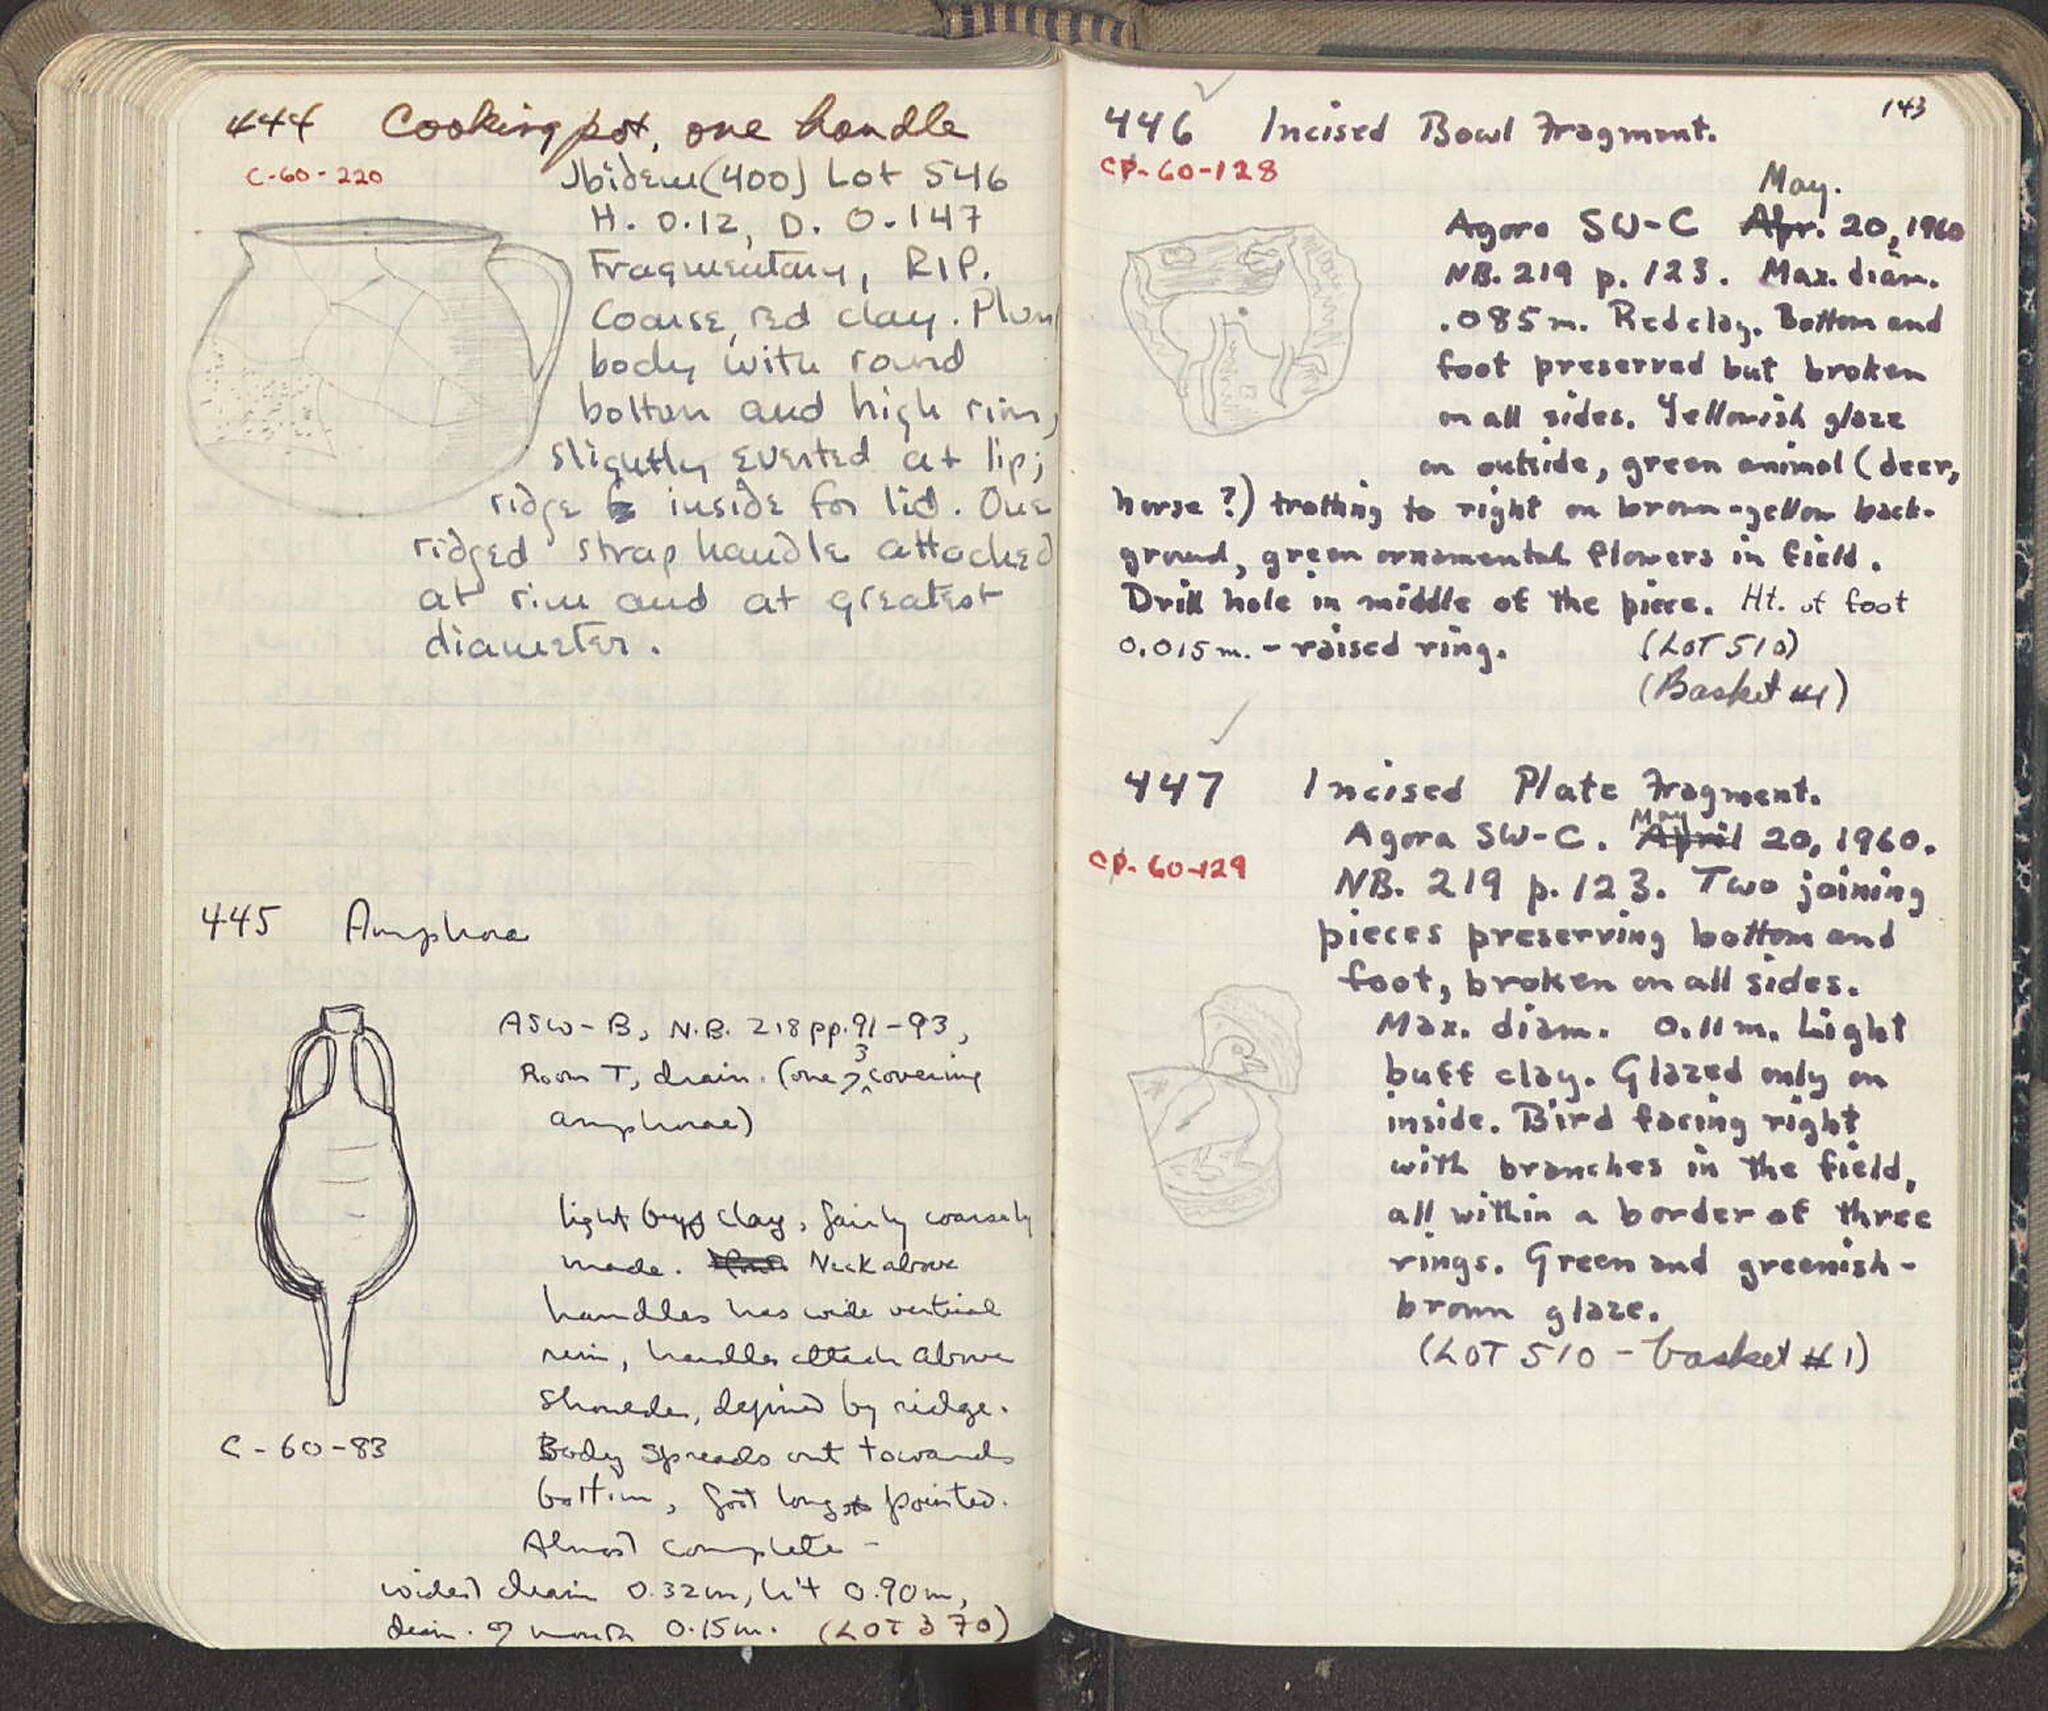 444 Cooking pot, one handle
C-60-220
Ibidem (400) Lot 546
H. 0.12, D. 0.147
Fragmentary, RIP.
Coarse, red clay. Plum
body with round
bottom and high rim,
slightly everted at lip;
ridge inside for lid. One
ridged strap handle attached
at rim and at greatest
diameter.
445 Amphora
ASW-B, N.B. 218 pp. 91-93,
Room T, drain. (one of 3 covering
amphorae)
light buff clay, fairly coarsely
made. Neck above
handles has wide vertical
rim, handles attach above
shoulder, defined by ridge.
C-60-83
Body spreads out towards
bottom, foot long pointed.
Almost complete -
widest diam 0.32m, h't 0.90m,
diam. of mouth 0.15m. (LOT 370)
143
446 Incised Bowl Fragment.
CP-60-128
May.
Agora SW-C Apr. 20, 1960
NB. 219 p. 123. Max. diam.
.085m. Red clay. Bottom and
foot preserved but broken
on all sides. Yellowish glaze
on outside, green animal (deer,
horse?) trotting to right on brown-yellow back-
ground, green ornamental flowers in field.
Drill hole in middle of the piece. Ht. of foot
0.015m. - raised ring. (LOT 510)
(Basket #1)
447 Incised Plate Fragment.
May
Agora SW-C. April 20, 1960.
CP-60-129
NB. 219 p. 123. Two joining
pieces preserving bottom and
foot, broken on all sides.
Max. diam. 0.11m. Light
buff clay. Glazed only on
inside. Bird facing right
with branches in the field,
all within a border of three
rings. Green and greenish-
brown glaze.
(LOT 510 - basket #1)